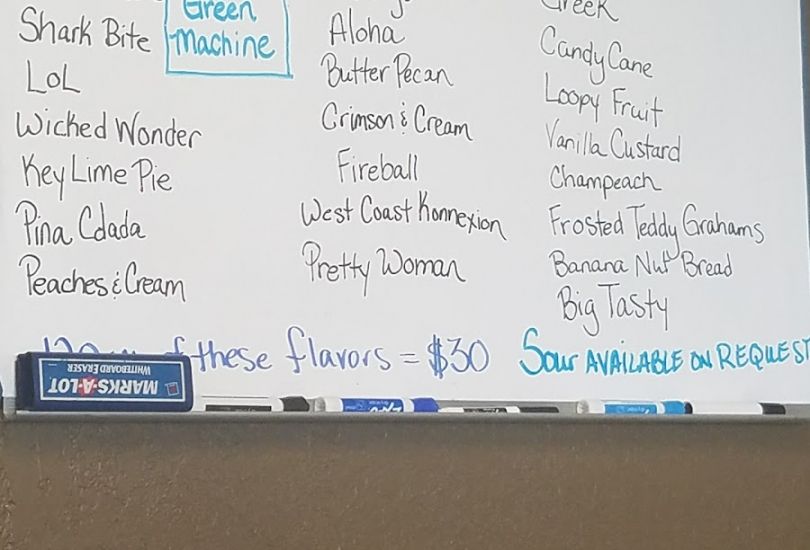 Shark Bite
LOL
Wicked Wonder
Key Lime Pie
Pina Colada
Peaches & Cream
Green
Machine
Aloha
Butter Pecan
Crimson & Cream
Fireball
West Coast Konnexion
Pretty Woman
Greek
Candy Cane
Loopy Fruit
Vanilla Custard
Champeach
Frosted Teddy Grahams
Banana Nut Bread
Big Tasty
of these flavors = $30
Sour AVAILABLE ON REQUEST
MARKS-A-LOT
WHITEBOARD ERASER
EXPO